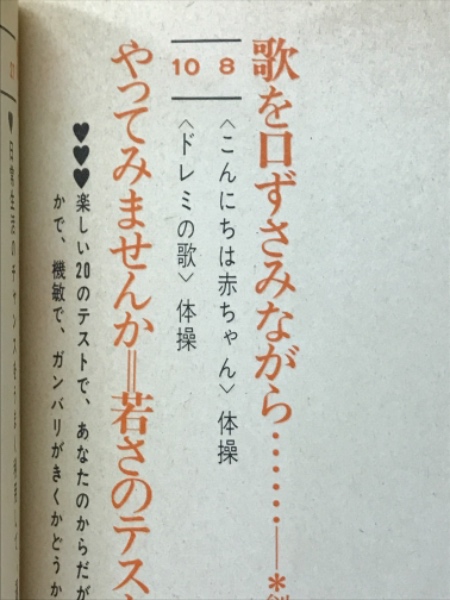 歌を口ずさみながら……―*
8
〈こんにちは赤ちゃん〉体操
10
〈ドレミの歌〉体操
やってみませんか=若さのテス
♥♥♥楽しい20のテストで、あなたのからだが
かで、機敏で、ガンバリがきくかどうか
♥日常生活のチャンスを